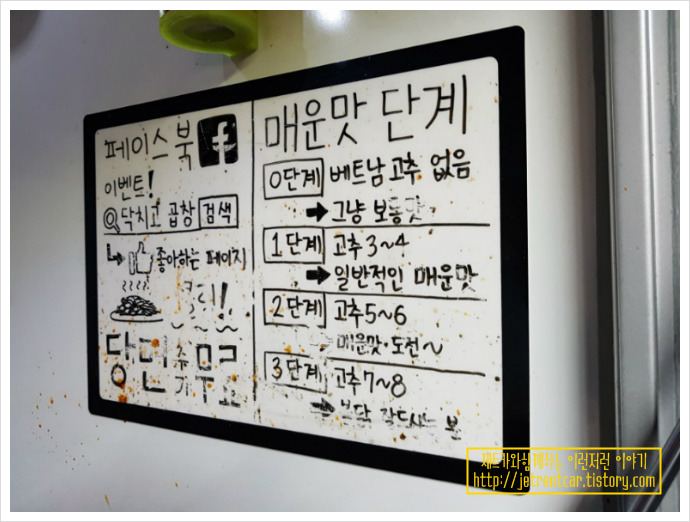 페이스북 f
이벤트!
닥치고 곱창 검색
좋아하는 페이지
클릭!
당면 추가 무료
매운맛 단계
0단계 베트남 고추 없음
그냥 보통맛
1단계 고추 3~4
일반적인 매운맛
2단계 고추 5~6
매운맛·도전~
3단계 고추 7~8
이런저런 이야기
http://jetrentcar.tistory.com